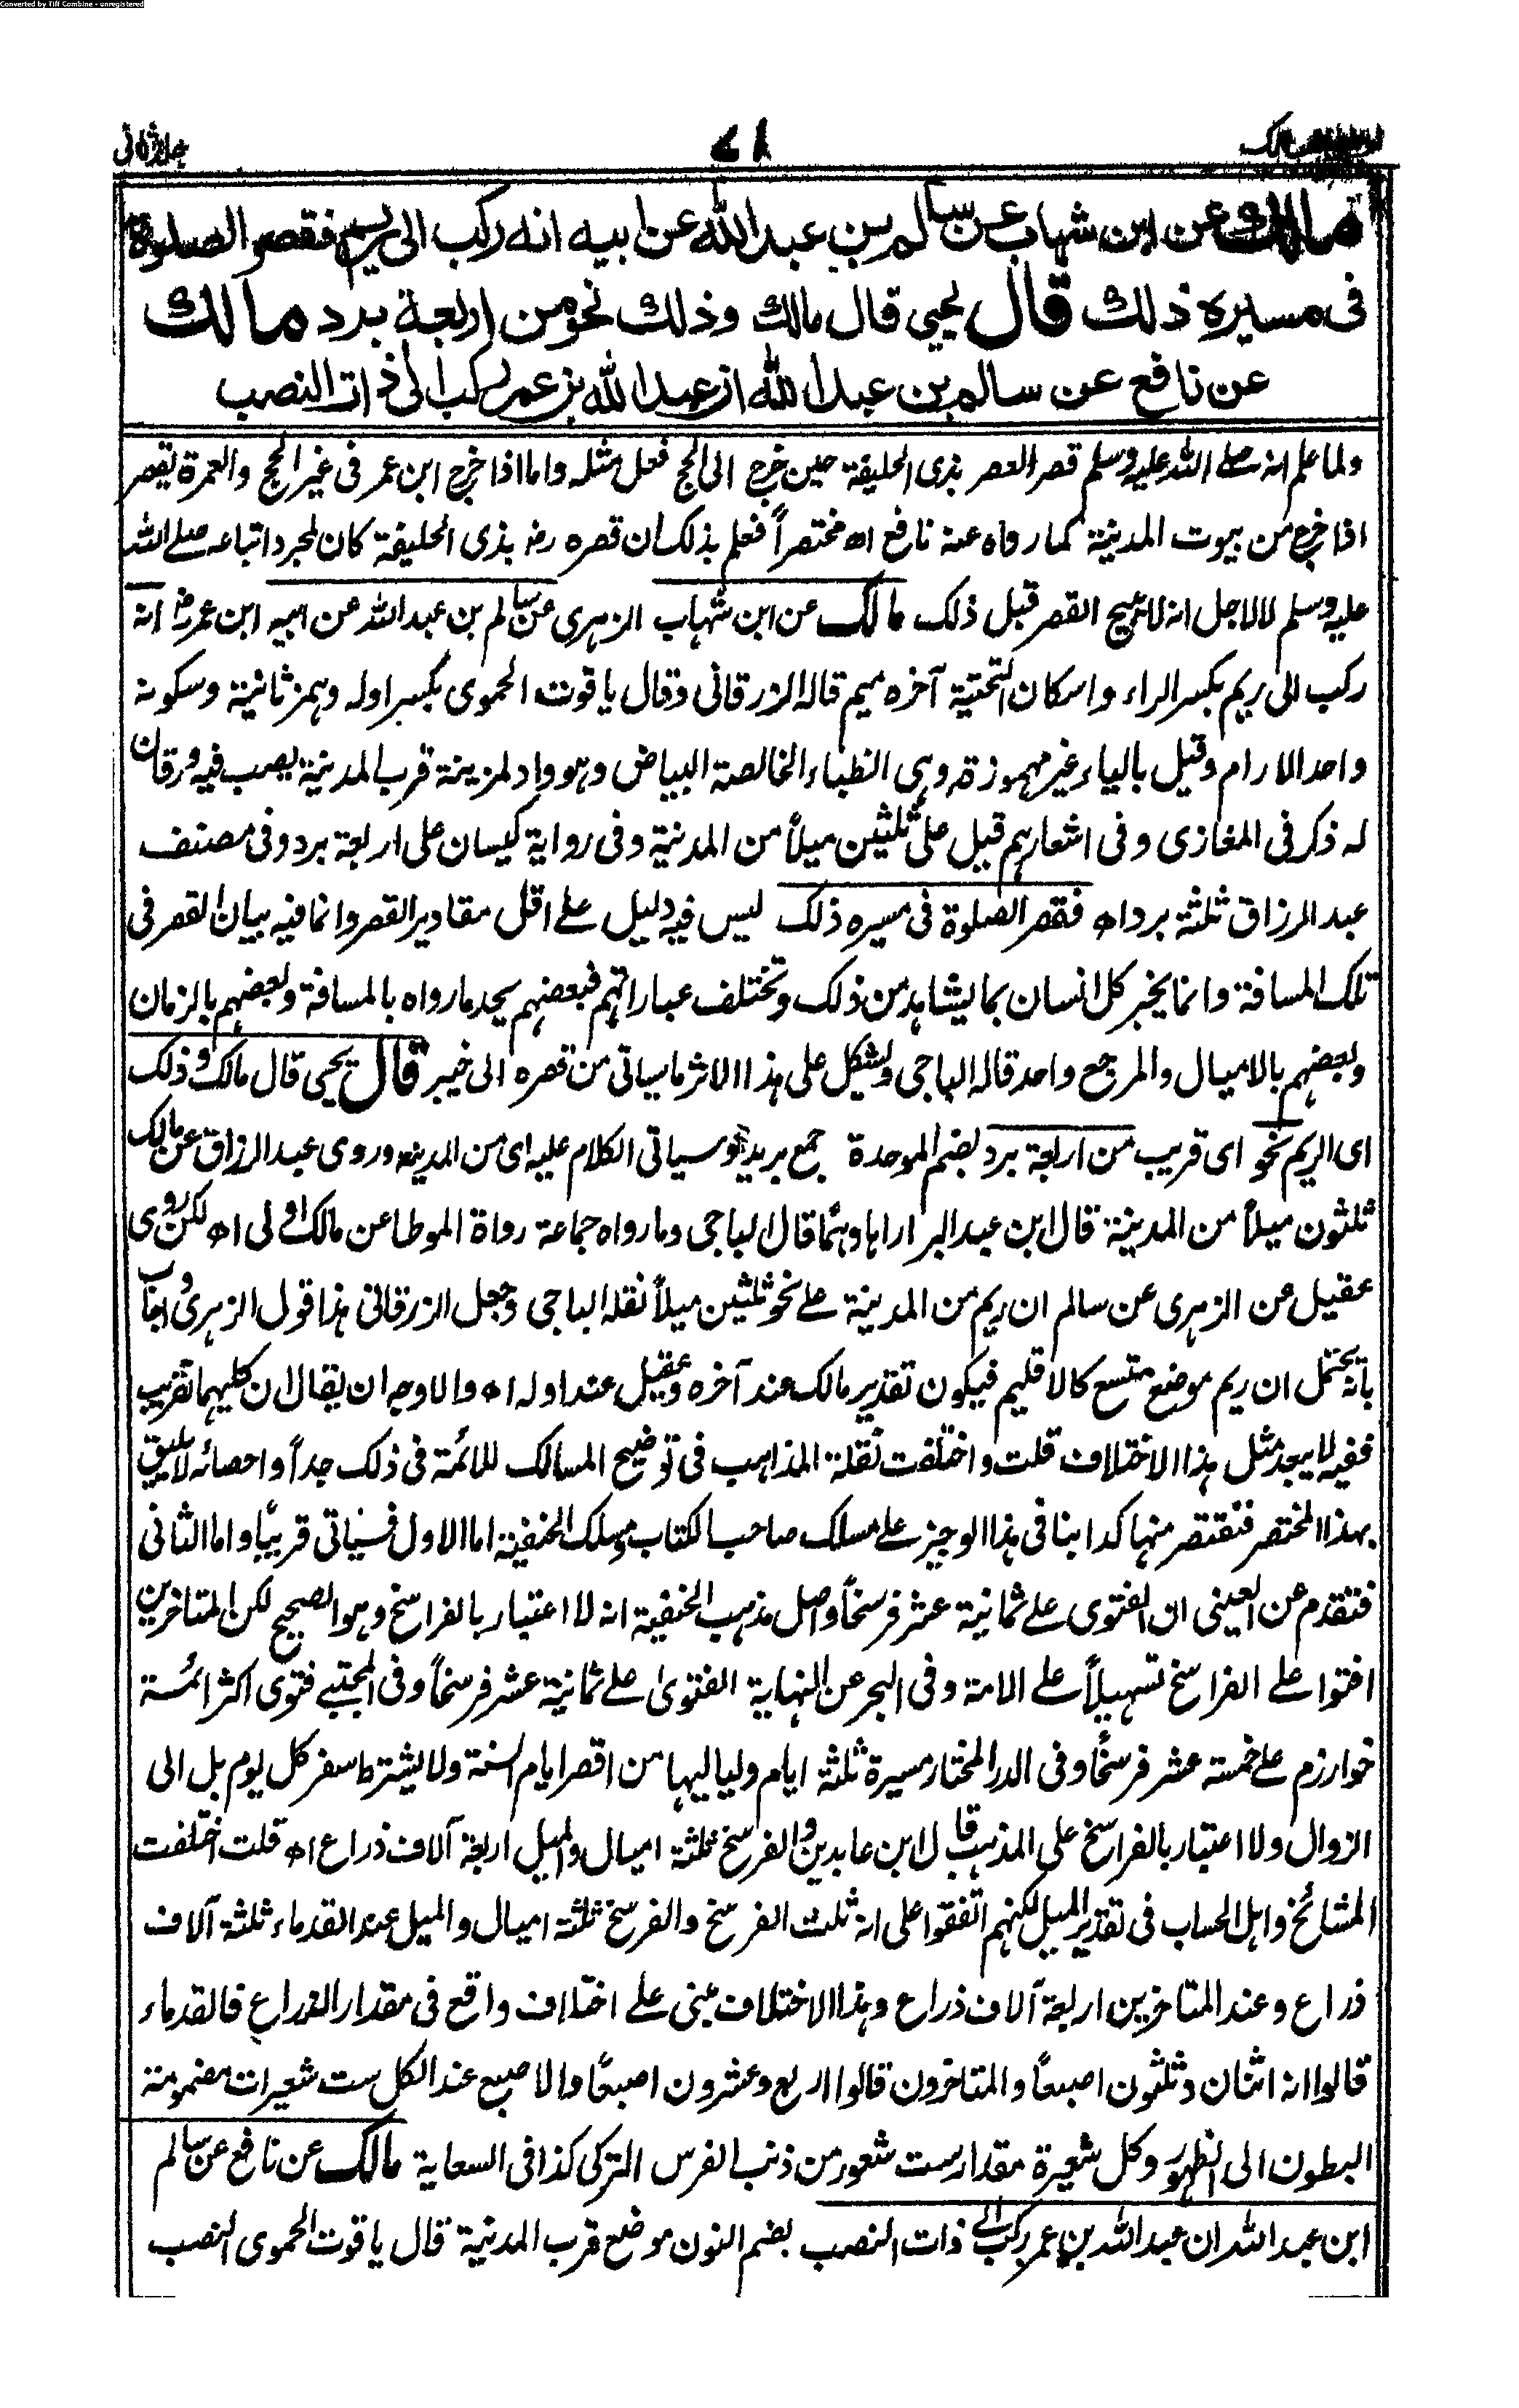 Converted by Tiff Combine - unregistered
جلد ثانى
مالك عن ابن شهاب عن سالم بن عبد الله عن ابيه انه ركب الى ريم فقصر الصلوة
فى مسيره ذلك قال يحيى قال مالك وذلك نحو من اربعة برد مالك
عن نافع عن سالم بن عبد الله ان عبد الله بن عمر ركب الى ذات النصب
ولما علم انه صلے الله عليه وسلم قصر العصر بذى الحليفة حين خرج الى الحج فعل مثله واما اذا خرج ابن عمر فى غير الحج والعمرة يقصر
اذا خرج من بيوت المدينة كما رواه عنه نافع اه مختصراً فعلم بذلك ان قصره رضـ بذى الحليفة كان لمجرد اتباعه صلے الله
عليه وسلم لالاجل انه لا يبيح القصر قبل ذلك مالك عن ابن شهاب الزهرى عن سالم بن عبد الله عن ابيه ابن عمر رضـ انه
ركب الى ريم بكسر الراء واسكان التحتية آخره ميم قاله الزرقانى وقال ياقوت الحموى بكسر اوله وهمز ثانية وسكونه
واحد الارام وقيل بالياء غير مهموزة وهى الظباء الخالصة البياض وهو واد لمزينة قرب المدينة يصب فيه ورقان
له ذكر فى المغازى وفى اشعارهم قيل على ثلثين ميلاً من المدينة وفى رواية كيسان على اربعة برد وفى مصنف
عبد الرزاق ثلثة برد اه فقصر الصلوة فى مسيره ذلك ليس فيه دليل علے اقل مقادير القصر وانما فيه بيان القصر فى
تلك المسافة وانما يخبر كل انسان بما يشاهد من ذلك وتختلف عباراتهم فبعضهم يحد ما رواه بالمسافة وبعضهم بالزمان
وبعضهم بالاميال والمرجع واحد قاله الباجى ويشكل على هذا الاثر ما سياتى من قصره الى خيبر قال يحيى قال مالك وذلك
اى الريم نحو اى قريب من اربعة برد بضم الموحدة جمع بريد وسياتى الكلام عليه اى من المدينه وروى عبد الرزاق عن مالك
ثلثون ميلاً من المدينة قال ابن عبد البر اراها وهما قال الباجى وما رواه جماعة رواة الموطا عن مالك اولى اه لكن روى
عقيل عن الزهرى عن سالم ان ريم من المدينة علے نحو ثلثين ميلاً نقله الباجى وجعل الزرقانى هذا قول الزهرى واجاب
بانه يحتمل ان ريم موضع متسع كالاقليم فيكون تقدير مالك عند آخره وعقيل عند اوله اه والاوجه ان يقال ان كليهما تقريب
ففيه لا يبعد مثل هذا الاختلاف قلت واختلفت نقلة المذاهب فى توضيح المسالك للائمة فى ذلك جداً واحصائه لا يليق
بهذا المختصر فنقتصر منها كدابنا فى هذا الوجيز علے مسلك صاحب الكتاب ومسلك الحنفية اما الاول فسياتى قريباً واما الثانى
فتقدم عن العينى ان الفتوى علے ثمانية عشر فرسخاً واصل مذهب الحنفية انه لا اعتبار بالفراسخ وهو الصحيح لكن المتاخرين
افتوا علے الفراسخ تسهيلاً علے الامة وفى البحر عن النهاية الفتوىٰ علے ثمانية عشر فرسخاً وفى المجتبے فتوى اكثر ائمة
خوارزم علے خمسة عشر فرسخاً وفى الدر المختار مسيرة ثلثة ايام ولياليها من اقصر ايام السنة ولا يشترط سفر كل يوم بل الى
الزوال ولا اعتبار بالفراسخ على المذهب قال ابن عابدين والفرسخ ثلثة اميال والميل اربعة آلاف ذراع اه قلت اختلفت
المشائخ واهل الحساب فى تقدير الميل لكنهم اتفقوا على انه ثلث الفرسخ والفرسخ ثلثة اميال والميل عند القدماء ثلثة آلاف
ذراع وعند المتاخرين اربعة آلاف ذراع وهذا الاختلاف مبنى علے اختلاف واقع فى مقدار الذراع فالقدماء
قالوا انه اثنان وثلثون اصبعاً والمتاخرون قالوا اربع وعشرون اصبعاً والاصبع عند الكل ست شعيرات مضمومة
البطون الى الظهور وكل شعيرة مقدار ست شعور من ذنب الفرس التركى كذا فى السعاية مالك عن نافع عن سالم
ابن عبد الله ان عبد الله بن عمر ركب الے ذات النصب بضم النون موضع قرب المدينة قال ياقوت الحموى النصب